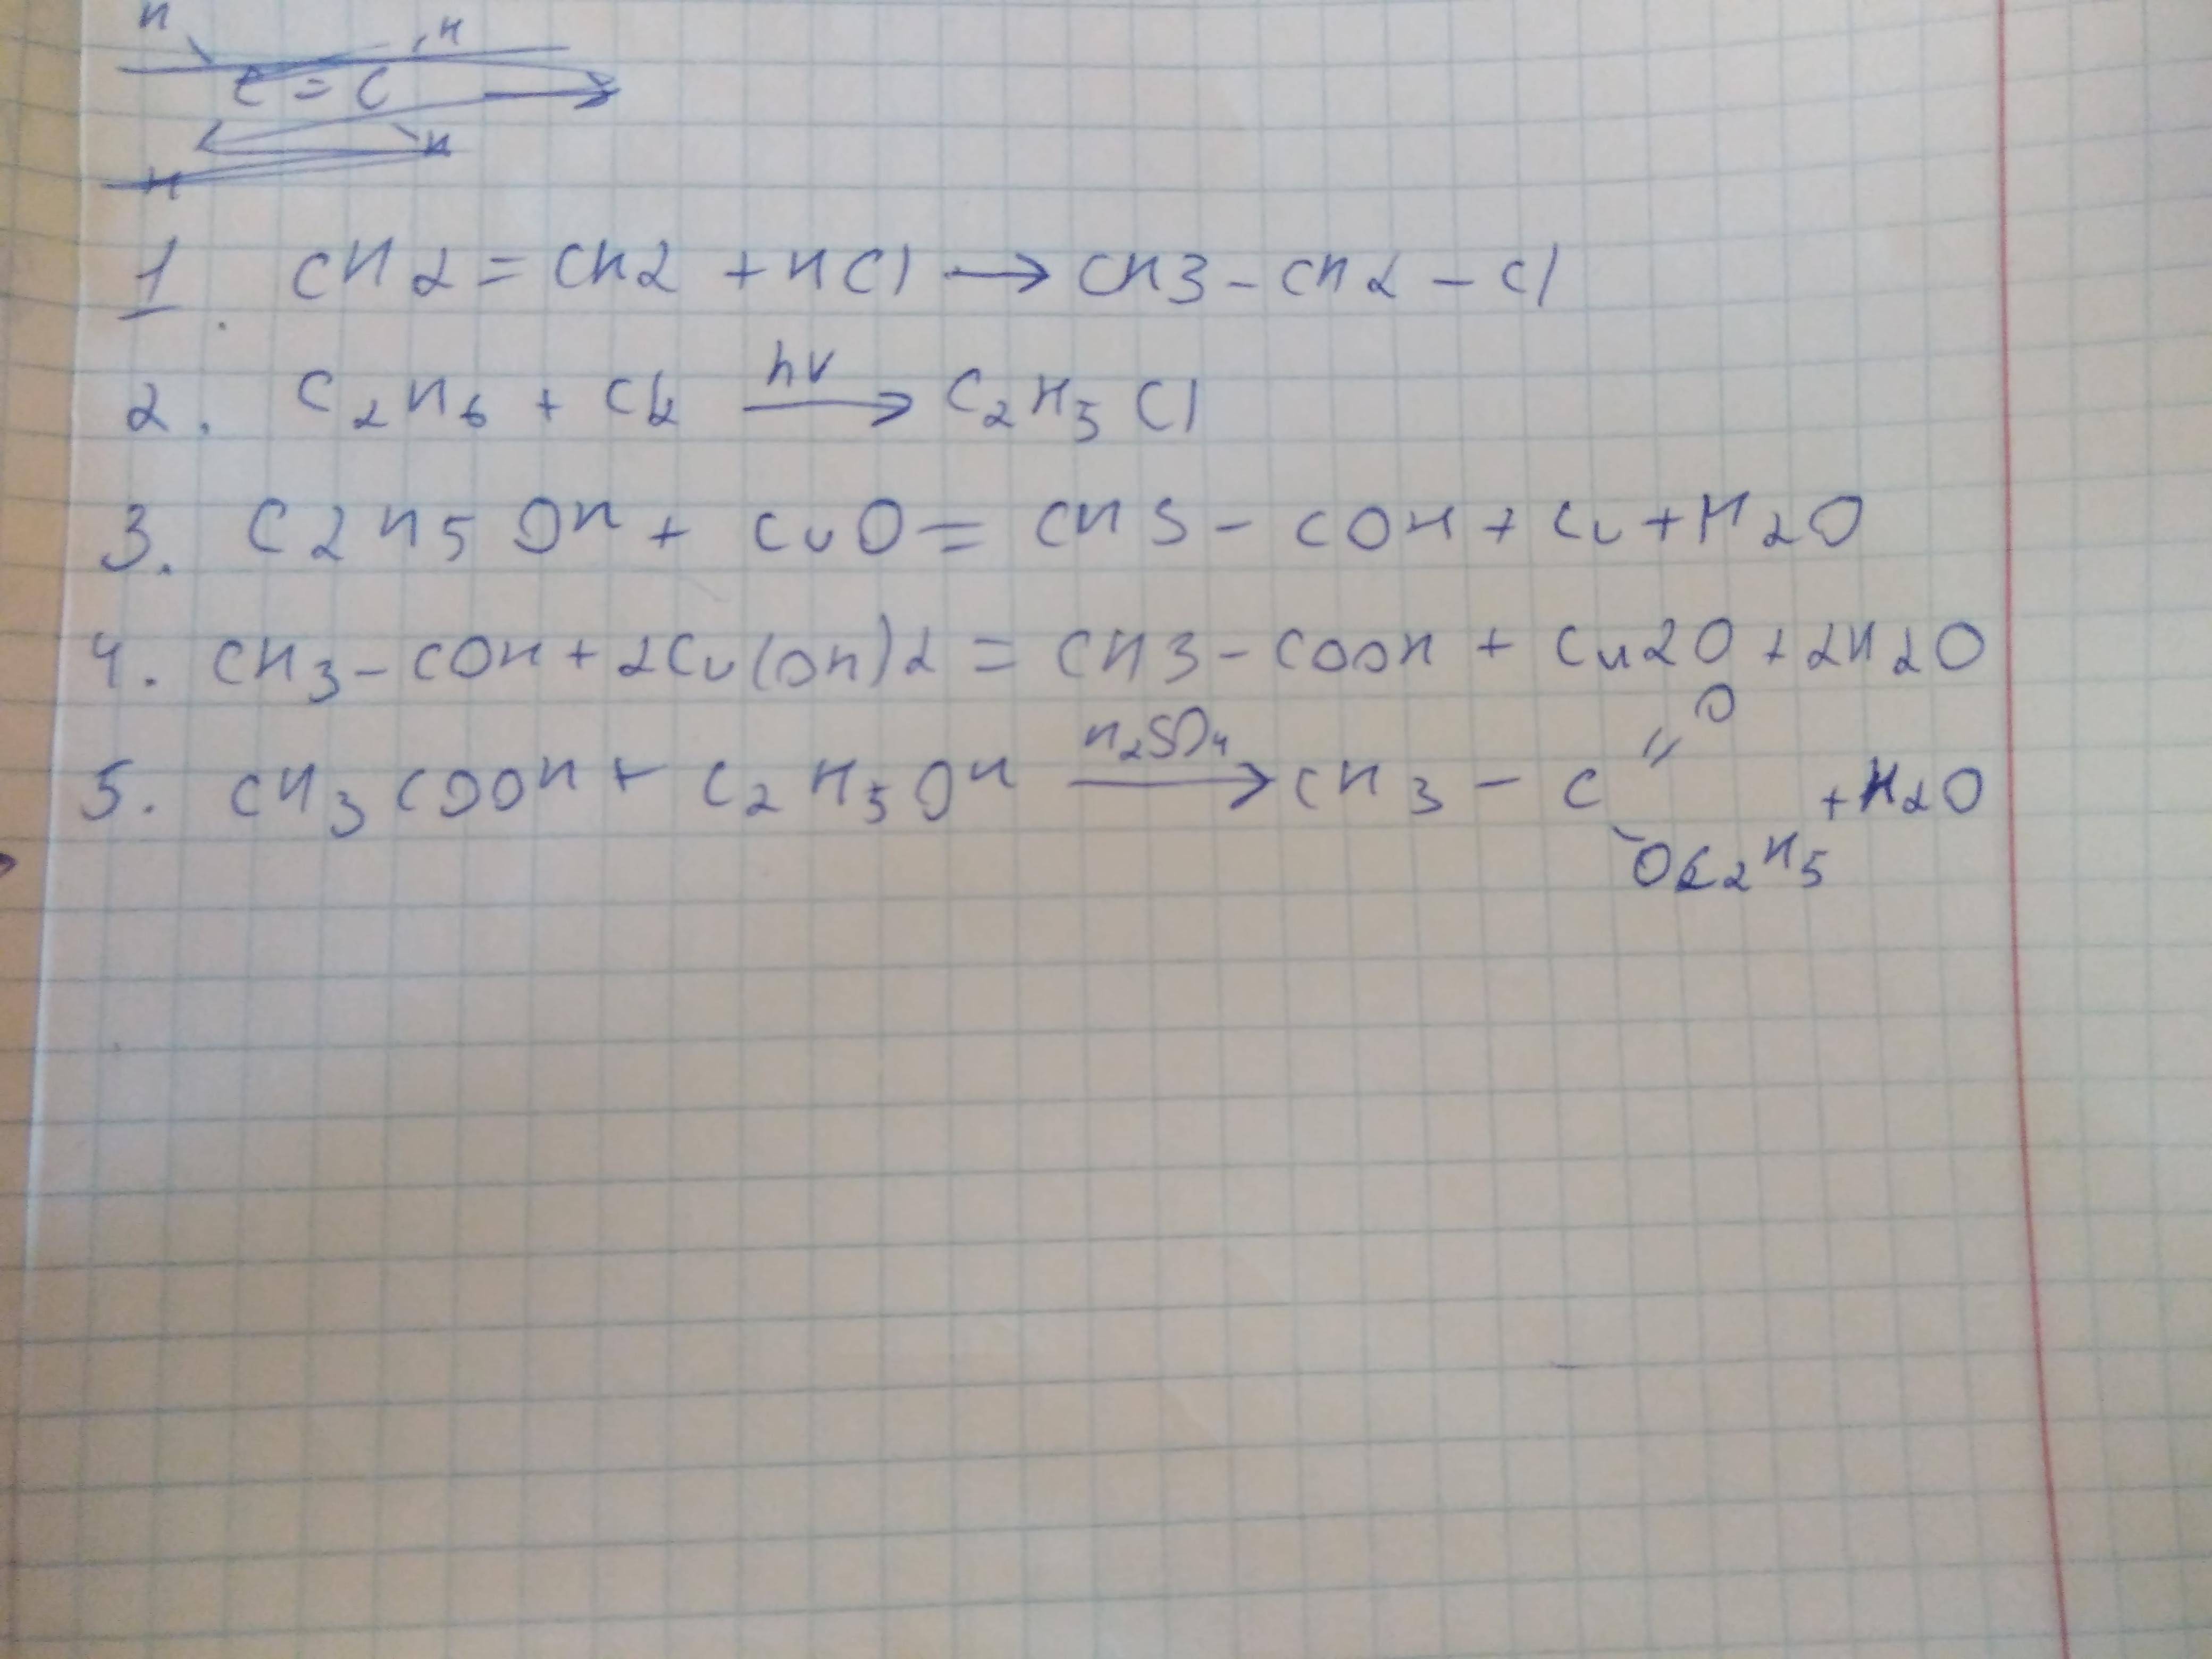 H H
C = C
H H
1. CH2 = CH2 + HCl → CH3 - CH2 - Cl
2. C2H6 + Cl2 hv → C2H5Cl
3. C2H5OH + CuO = CH3 - COH + Cu + H2O
4. CH3 - COH + 2Cu(OH)2 = CH3 - COOH + Cu2O + 2H2O
5. CH3COOH + C2H5OH H2SO4 → CH3 - C =O -OC2H5 + H2O